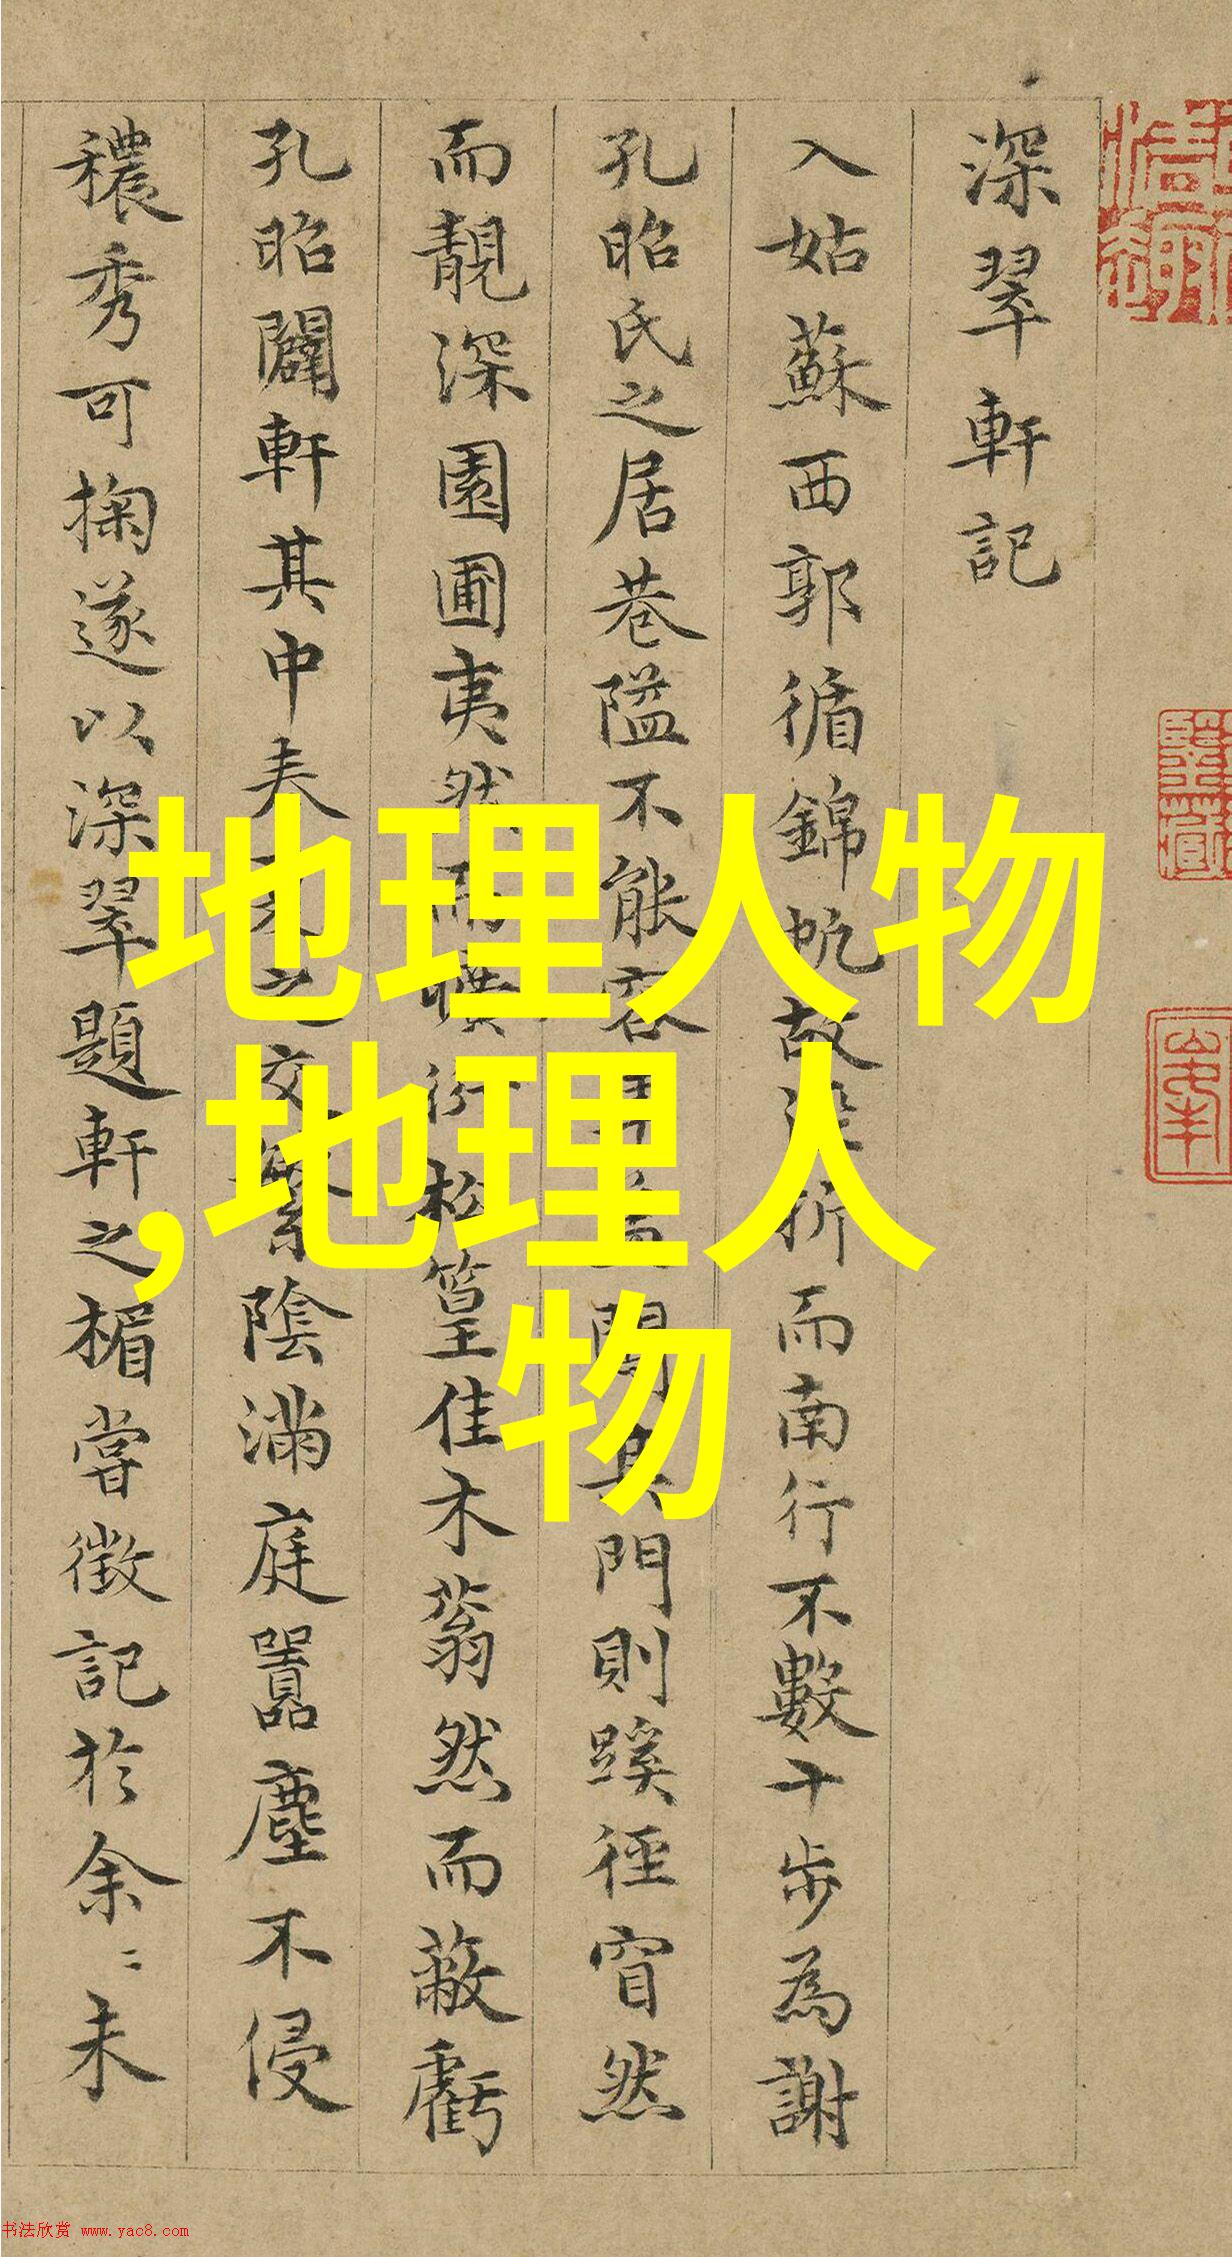 深翠軒記
入姑蘇西郭循錦帆故折而南行不數十步為謝
孔昭氏之居巷隘不能容闢其門則蹊徑窅然
而靚深園圃夷然而曠衍松篁佳木蓊然而蔽虧
孔昭闢軒其中之交繁陰滿庭囂塵不侵
穠秀可掬遂以深翠題軒之楣嘗徵記於余〻未
地理人物
,地理人
物
书法欣赏 www.yac8.com